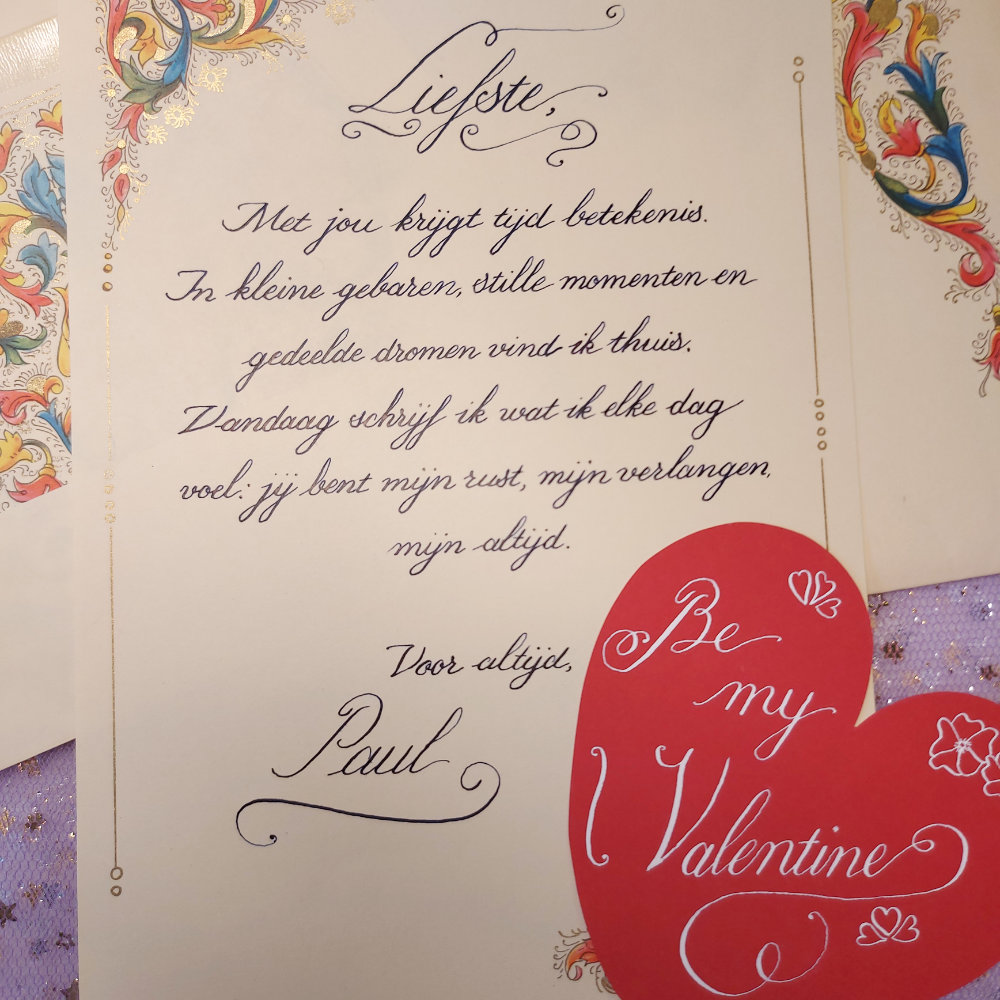 Liefste,
Met jou krijgt tijd betekenis.
In kleine gebaren, stille momenten en
gedeelde dromen vind ik thuis.
Vandaag schrijf ik wat ik elke dag
voel: jij bent mijn rust, mijn verlangen,
mijn altijd.
Voor altijd,
Paul
Be
my
Valentine